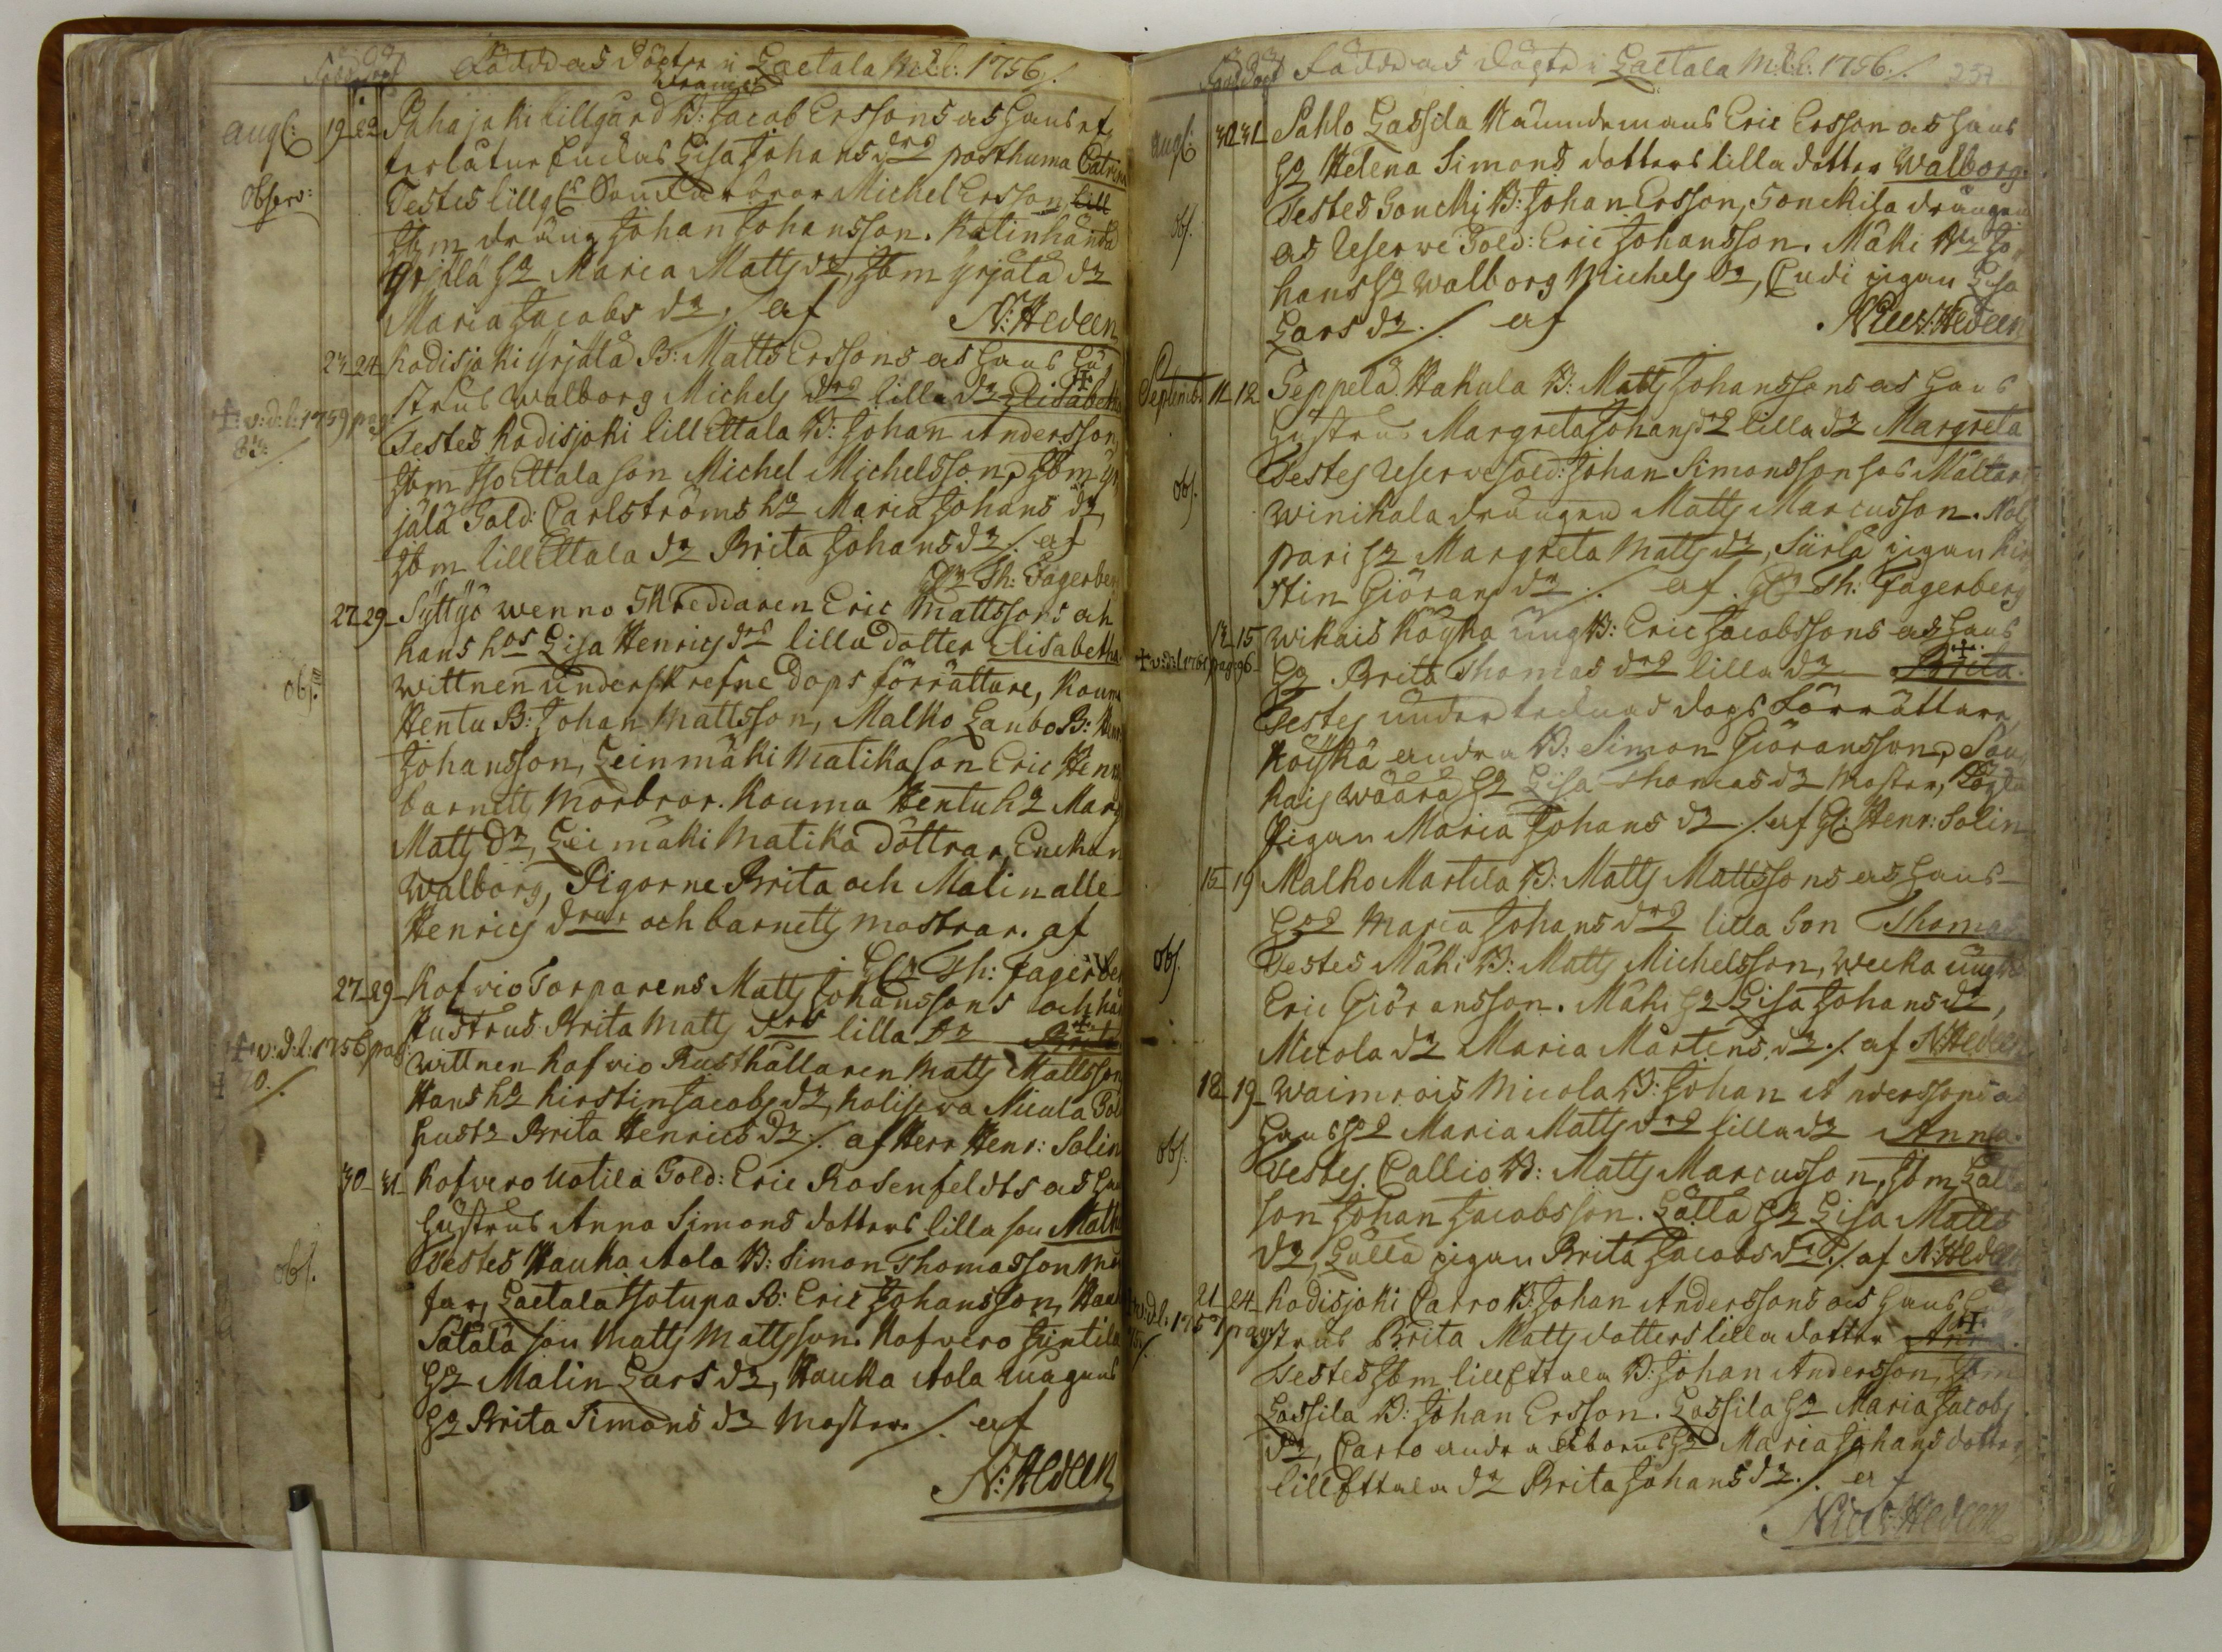 Födde och döpte i Laetala M:l: 1756./.
augl: 19 22 Pahajoki lillgård B: Jacob Erssons as hans ef,
terlåtne Enckas Lisa Johans drs posthuma Catrina
Observ: Testes lillg Michel Ersson, lill
Jbm dräng Johan Johansson. Katinhända
Yrjälä h: Maria Matts dr, Jbm Yrjälä dr
Maria Jacobs dr ./. af N: Hedeen
23 24 Kodisjoki Yrjälä B: Matts Erssons as hans hu,
strus Walborg Michels drs lilla dr Elisabetha
+ v: d: l: 1759 pag: 83:/.
Testes Kodisjoki lill Ettala B: Johan Andersson
Jbm Iso Ettala son Michel Michelsson, Jbm Yr,
jälä Sold: Carlströms h: Maria Johans dr,
Jbm lill Ettala dr Brita Johans dr ./. af
Th: Fagerberg
27 29 Syttyö wenno Skreddaren Eric Mattssons och
hans hos Lisa Henrics drs lilla dotter Elisabetha
obs. Wittnen underskrefne Dops förrättare, Kouma
Hentu B: Johan Mattsson, Malko Laubo B: Henr:
Johansson, Leinmäki Matika son Eric Henr:
barnets Morbror. Kouma Hentu h: Marg
Matts dr, Leimäki Matika döttrar, Enckan
Walborg, Pigorne Brita och Malin alle
Henrics drar och barnets mostrar. af
Th: Fagerberg
27 29 Kofvio Torparens Matts Johanssons och hans
Hustrus Brita Matts drs lilla dr Brita
+ v: d: l: 1756 pag: 70./.
Wittnen Kofvio Rusthållaren Matts Mattsson
Hans h: Kirstin Jacobs dr, Koliseva Nicula Sol
hust: Brita Henrics dr ./. af Herr Henr: Solin
30 31 Kofvero Uotila Sold: Eric Rosenfeldts as hans
Hustrus Anna Simons dotters lilla son Matts
obs. Testes Hauka Aola B: Simon Thomasson Mor
far, Laetala Isotupa B: Eric Johansson, Hau
Sätälä son Matts Mattsson. Kofvero Juntila
h: Malin Lars dr, Hauka Aola magens
h: Brita Simons dr Moster ./. af
N: Hedeen
Födde as döpte i Laetala M:l: 1756./. 237
augl: 30 31 Sahlo Lassila Nämndemans Eric Ersson as hans
h: Helena Simons dotters lilla dotter Walborg
obs. Testes Souchi B: Johan Ersson, Souchila drängen
as Reserve Sold: Eric Johansson. Mäki B: Jo,
hans h: Walborg Michels dr, Eudi pigan Lisa
Lars dr ./. af Nico: Hedeen
Septembr 11 12 Seppelä Hakula B: Matts Johanssons as hans
hustrus Margreta Johans dr lilla dr Margreta
obs. Testes Reserve Sold: Johan Simonsson hos Mältar
Winikala drängen Matts Marcusson. Kol
pari h: Margreta Matts dr, Siirlä pigan Kir
stin Giörans dr ./. af Th: Fagerberg
12 15 Wikais Köykä ung B: Eric Jacobssons as hans
+ v: d: l: 1761 pag: 96 h: Brita Thomas drs lilla dr Brita
Testes undertecknad dops Förrättare,
Köykä andra B: Simon Giöransson,
kais Wäärä h: Lisa Thomas dr Moster, Köykä
Pigan Maria Johans dr ./. af H: Henr: Solin
15 19 Malko Martila B: Matts Mattssons as hans
Maria Johans drs lilla Son Thomas
obs. Testes Mäki B: Matts Michelsson, Wecka ung B:
Eric Giöransson. Mäki h: Lisa Johans dr,
Nicola dr Maria Mårtens dr ./. af N: Hedeen
18 19 Waimrois Nicola B: Johan Anderssons as
Hans h: Maria Matts drs lilla dr Anna
obs. Testes Callio B: Matts Marcusson, Jbm Lälla
son Johan Jacobsson. Lälla h: Lisa Matts
dr, Lälla pigan Brita Jacobs dr ./. af N: Hedeen
21 24 Kodisjoki Carro B: Johan Anderssons as hans hu
v: d: l: 1757 pag strus Brita Matts dotters lilla dotter Anna
Testes Jbm lill Ettala B: Johan Andersson, Jbm
Lassila B: Johan Ersson. Lassila h: Maria Jacobs
dr, Carro andra Åboens h: Maria Johans dotter,
lill Ettala dr Brita Johans dr ./. af
Nico: Hedeen